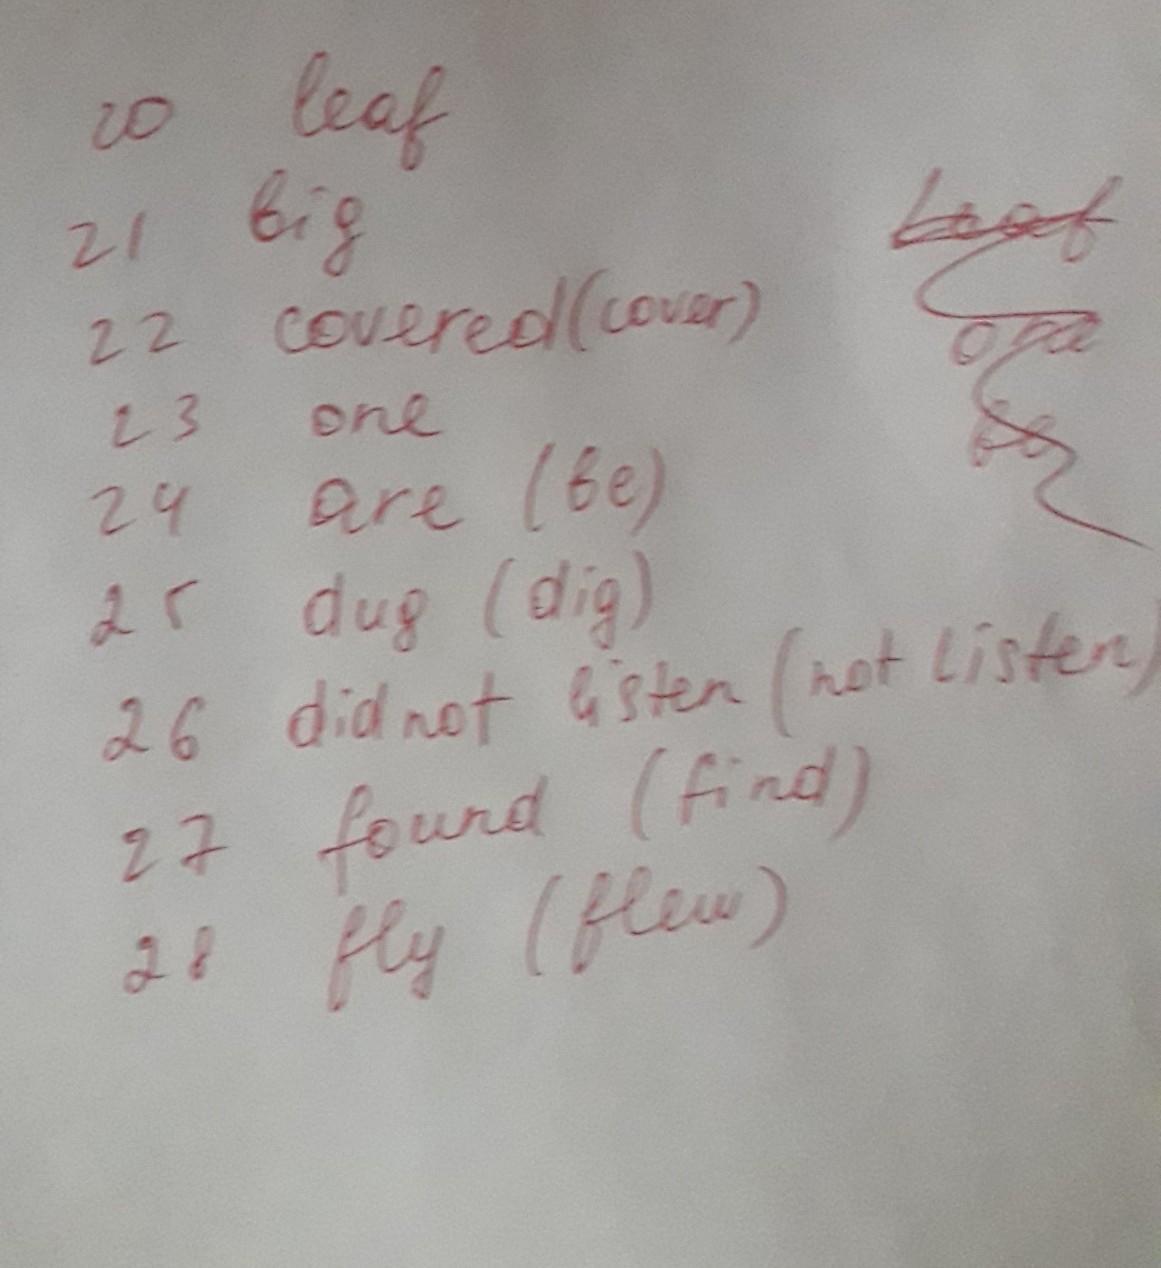 20 leaf
21 big
22 covered (cover)
23 one
24 are (be)
25 dug (dig)
26 did not listen (not listen)
27 found (find)
28 fly (flew)
Leaf
one